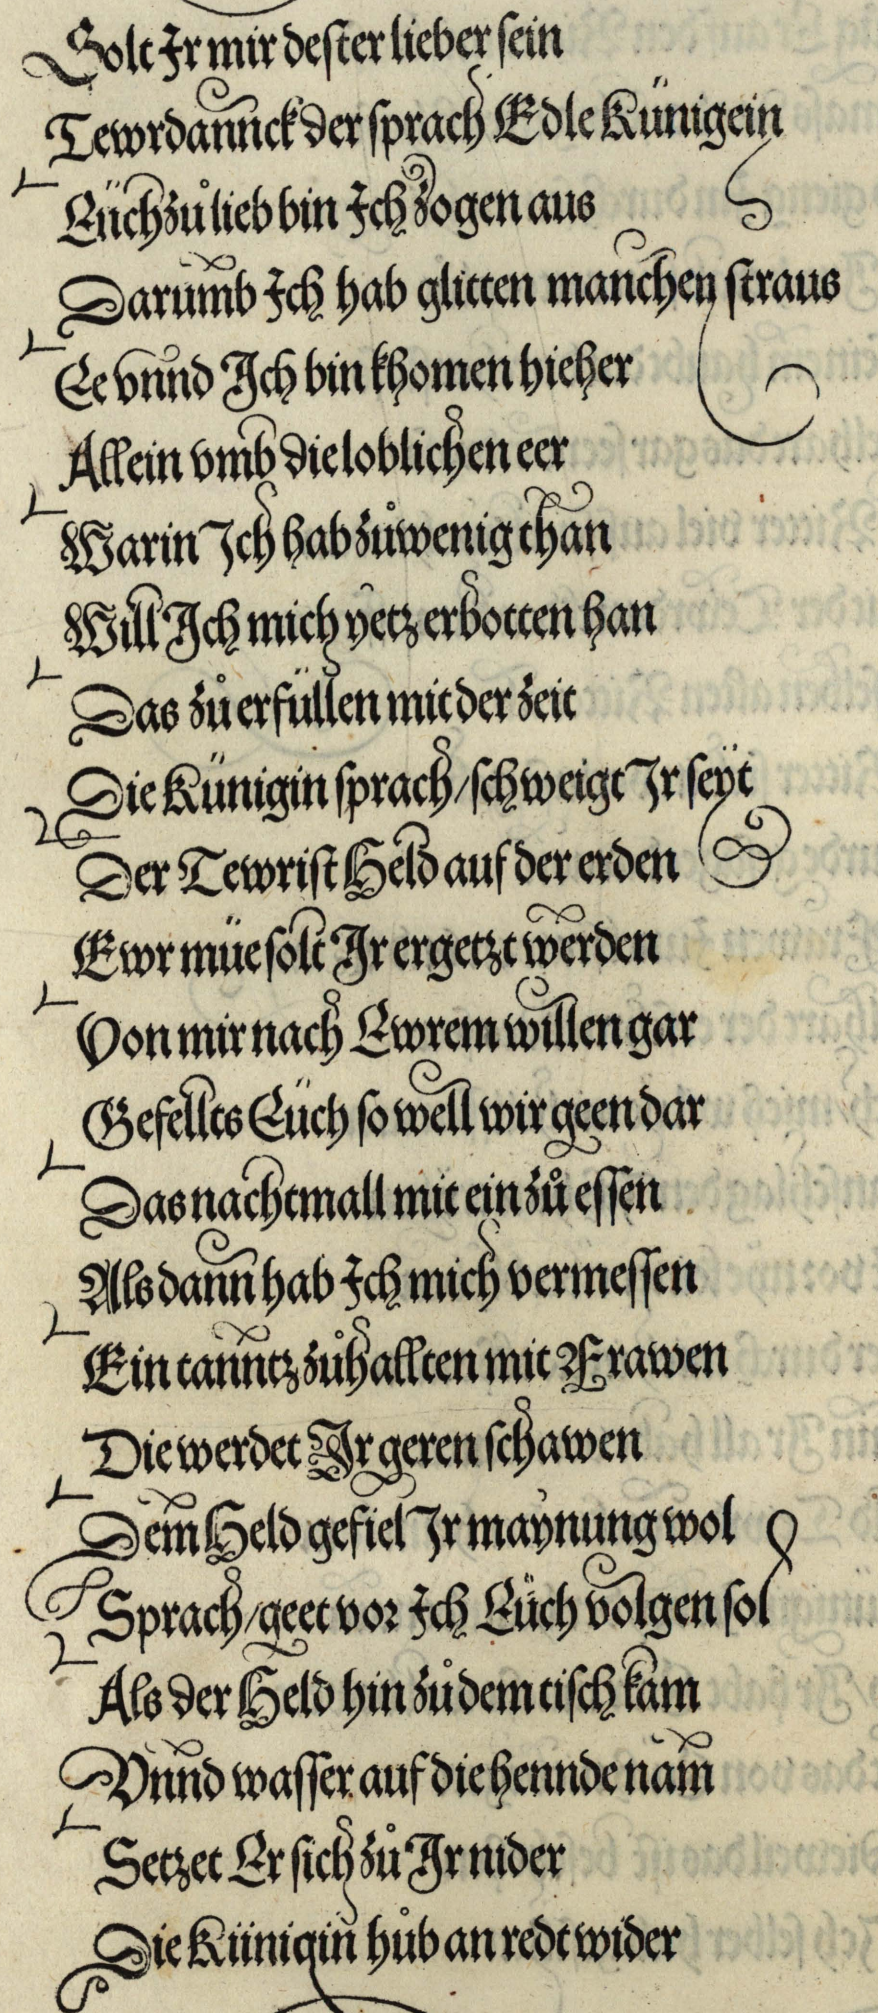 Solt Jr mir dester lieber sein
Tewrdannck der sprach Edle Künigein
Eüch zů lieb bin Jch zogen aus
Darumb Jch hab glitten manchen straus
Ee vnnd Jch bin khomen hieher
Allein vmb die loblichen eer
Warin Jch hab zůwenig than
Will Jch mich yetz erbotten han
Das zů erfüllen mit der zeit
Die Künigin sprach/schweigt Jr seyt
Der Tewrist Held auf der erden
Ewr müe solt Jr ergetzt werden
Von mir nach Ewrem willen gar
Gefellts Eüch so well wir geen dar
Das nachtmall mit ein zů essen
Als dann hab Jch mich vermessen
Ein tanntz zůhallten mit Frawen
Die werdet Jr geren schawen
Dem Held gefiel Jr maynung wol
Sprach/geet vor Jch Eüch volgen sol
Als der Held hin zů dem tisch kam
Vnnd wasser auf die hennde nam
Setzet Er sich zů Jr nider
Die Künigin hůb an redt wider